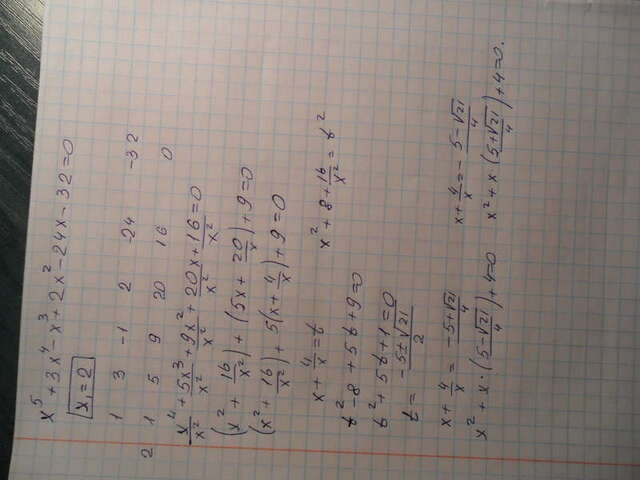 x⁵ + 3x⁴ - x³ + 2x² - 24x - 32 = 0
x₁ = 2
1 3 -1 2 -24 -32
2 1 5 9 20 16 0
x⁴/x² + 5x³/x² + 9x²/x² + 20x/x² + 16/x² = 0
(x² + 16/x²) + (5x + 20/x) + 9 = 0
(x² + 16/x²) + 5(x + 4/x) + 9 = 0
x + 4/x = t x² + 8 + 16/x² = t²
t² - 8 + 5t + 9 = 0
t² + 5t + 1 = 0
t = -5 ± √21 / 2
x + 4/x = -5 + √21 / 4 x + 4/x = - 5 - √21 / 4
x² + x · (5 - √21 / 4) + 4 = 0 x² + x (5 + √21 / 4) + 4 = 0.